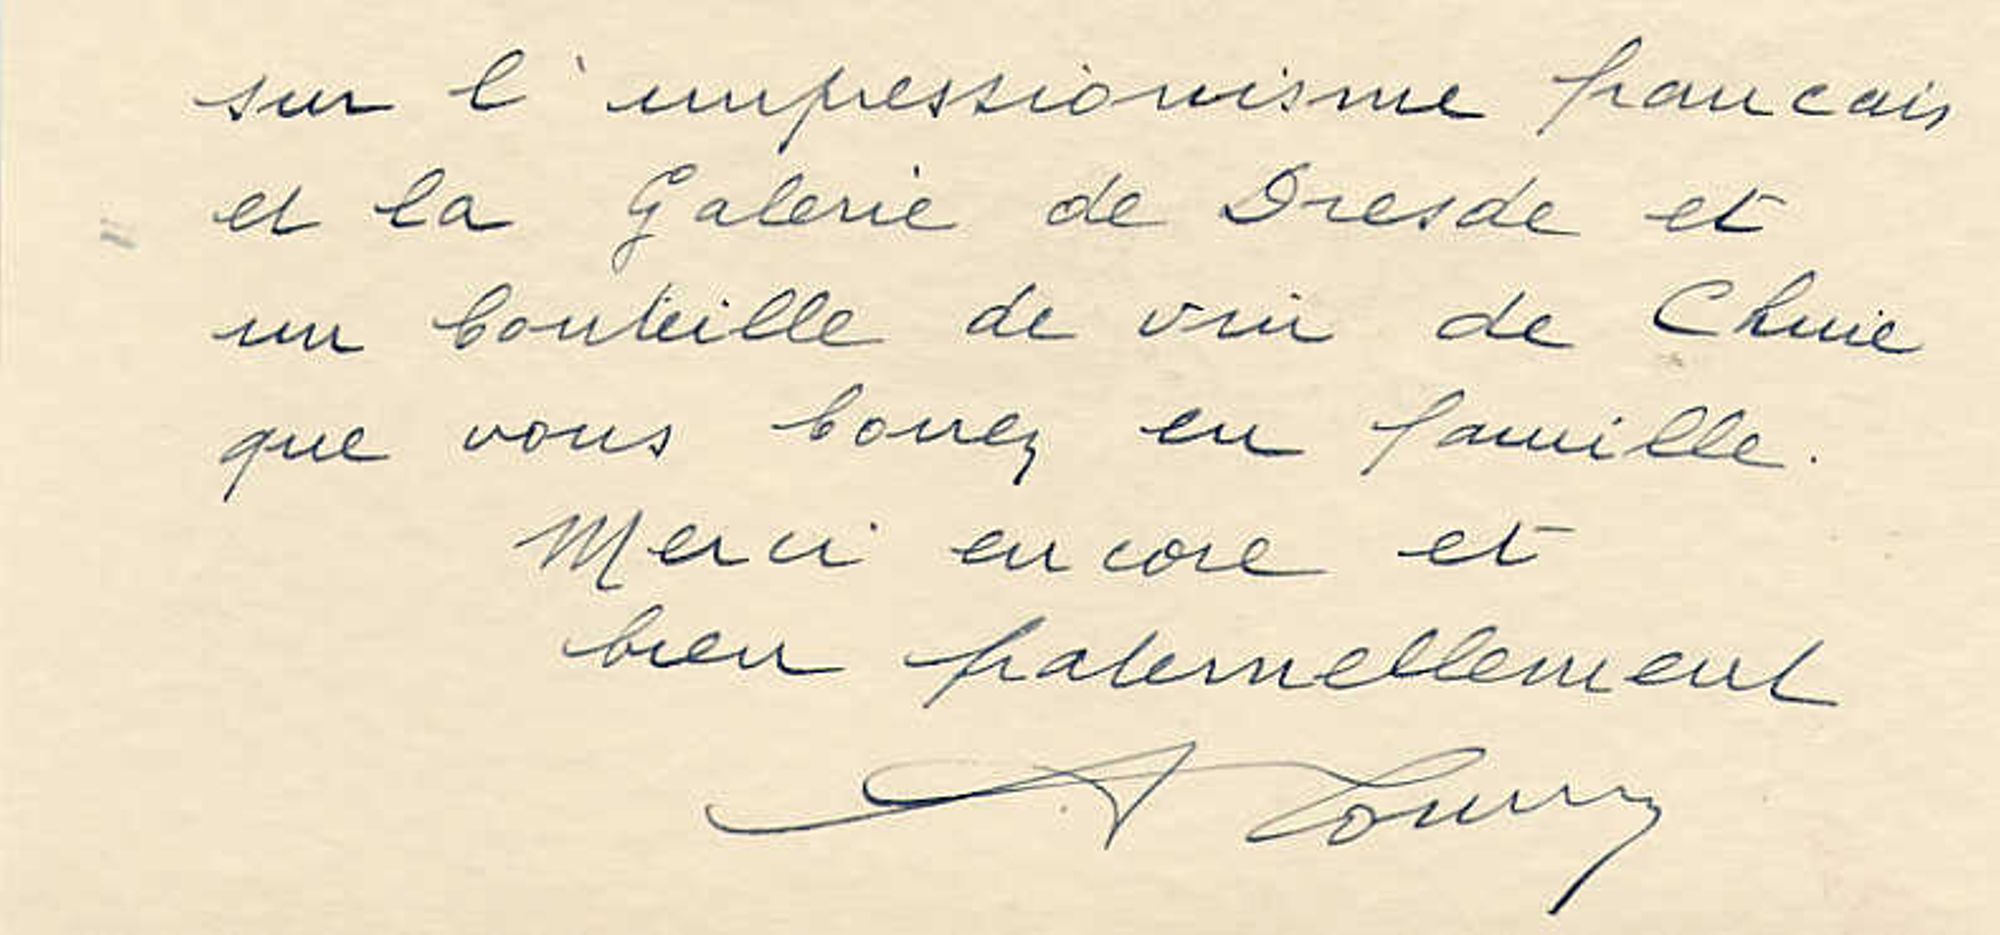 sur l'impressionisme francais
et la Galerie de Dresde et
un bouteille de vin de Chine
que vous bouvez en famille.
Merci encore et
bien fraternellement